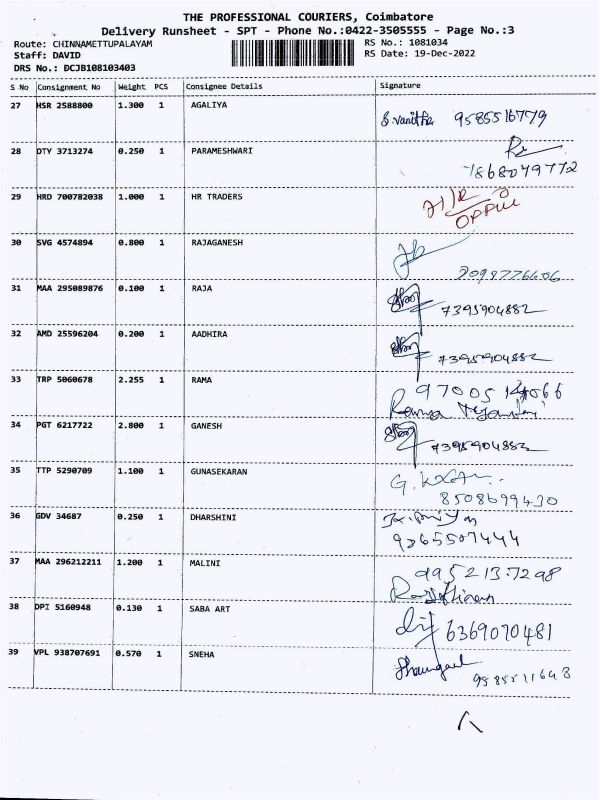 THE PROFESSIONAL COURIERS, Coimbatore
Delivery Runsheet - SPT - Phone No.:0422-3505555 - Page No.:3
Route: CHINNAMETTUPALAYAM RS No.: 1081034
Staff: DAVID RS Date: 19-Dec-2022
DRS No.: DCJB108103403
S No Consignment No Weight PCS Consignee Details Signature
27 HSR 2588800 1.300 1 AGALIYA
S. Vanitha 9585516779
28 DTY 3713274 0.250 1 PARAMESHWARI
7868079772
29 HRD 700782038 1.000 1 HR TRADERS
30 SVG 4574894 0.800 1 RAJAGANESH
31 MAA 295089876 0.100 1 RAJA
7395904882
32 AMD 25596204 0.200 1 AADHIRA
7395904882
33 TRP 5060678 2.255 1 RAMA
34 PGT 6217722 2.800 1 GANESH
7395904882
35 TTP 5290709 1.100 1 GUNASEKARAN
8508699430
36 GDV 34687 0.250 1 DHARSHINI
9365507444
37 MAA 296212211 1.200 1 MALINI
9952137298
38 DPI 5160948 0.130 1 SABA ART
6369070481
39 VPL 938707691 0.570 1 SNEHA
9585511643